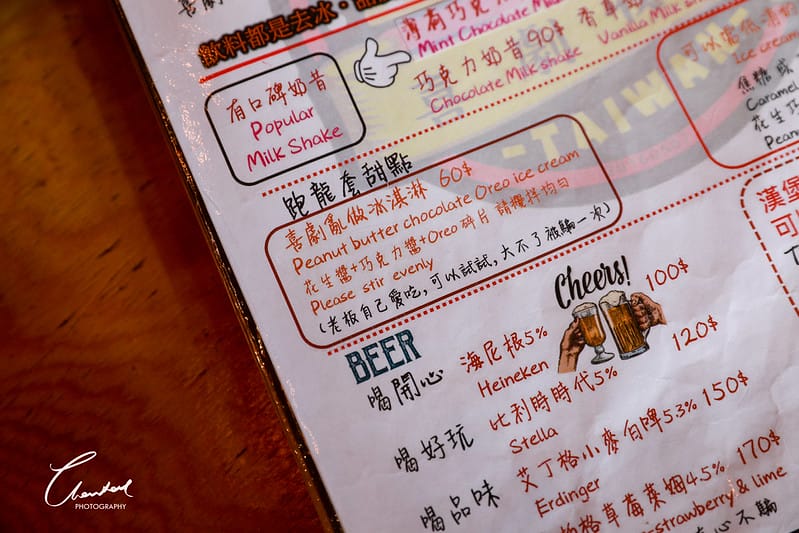 飲料都是去冰
薄荷巧克
Mint Chocolate Mil
香草
Vanilla Milk sh
巧克力奶昔 90$
Chocolate Milk shake
有口碑奶昔
Popular
Milk Shake
可以
ice cream
焦糖
Caramel
花生巧
Peanu
TAIWAN
跑龍套甜點
喜劇亂做冰淇淋 60$
Peanut butter chocolate Oreo ice cream
花生醬+巧克力醬+Oreo 碎片 請攪拌均勻
Please stir evenly
(老板自己愛吃,可以試試,大不了被騙一次)
漢堡
可
BEER
Cheers!
喝開心
海尼根5% 100$
Heineken
喝好玩
比利時時代5% 120$
Stella
喝品味
艾丁格小麥白啤5.3% 150$
Erdinger
格草莓萊姆4.5% 170$
-strawberry & lime
心不騙
PHOTOGRAPHY